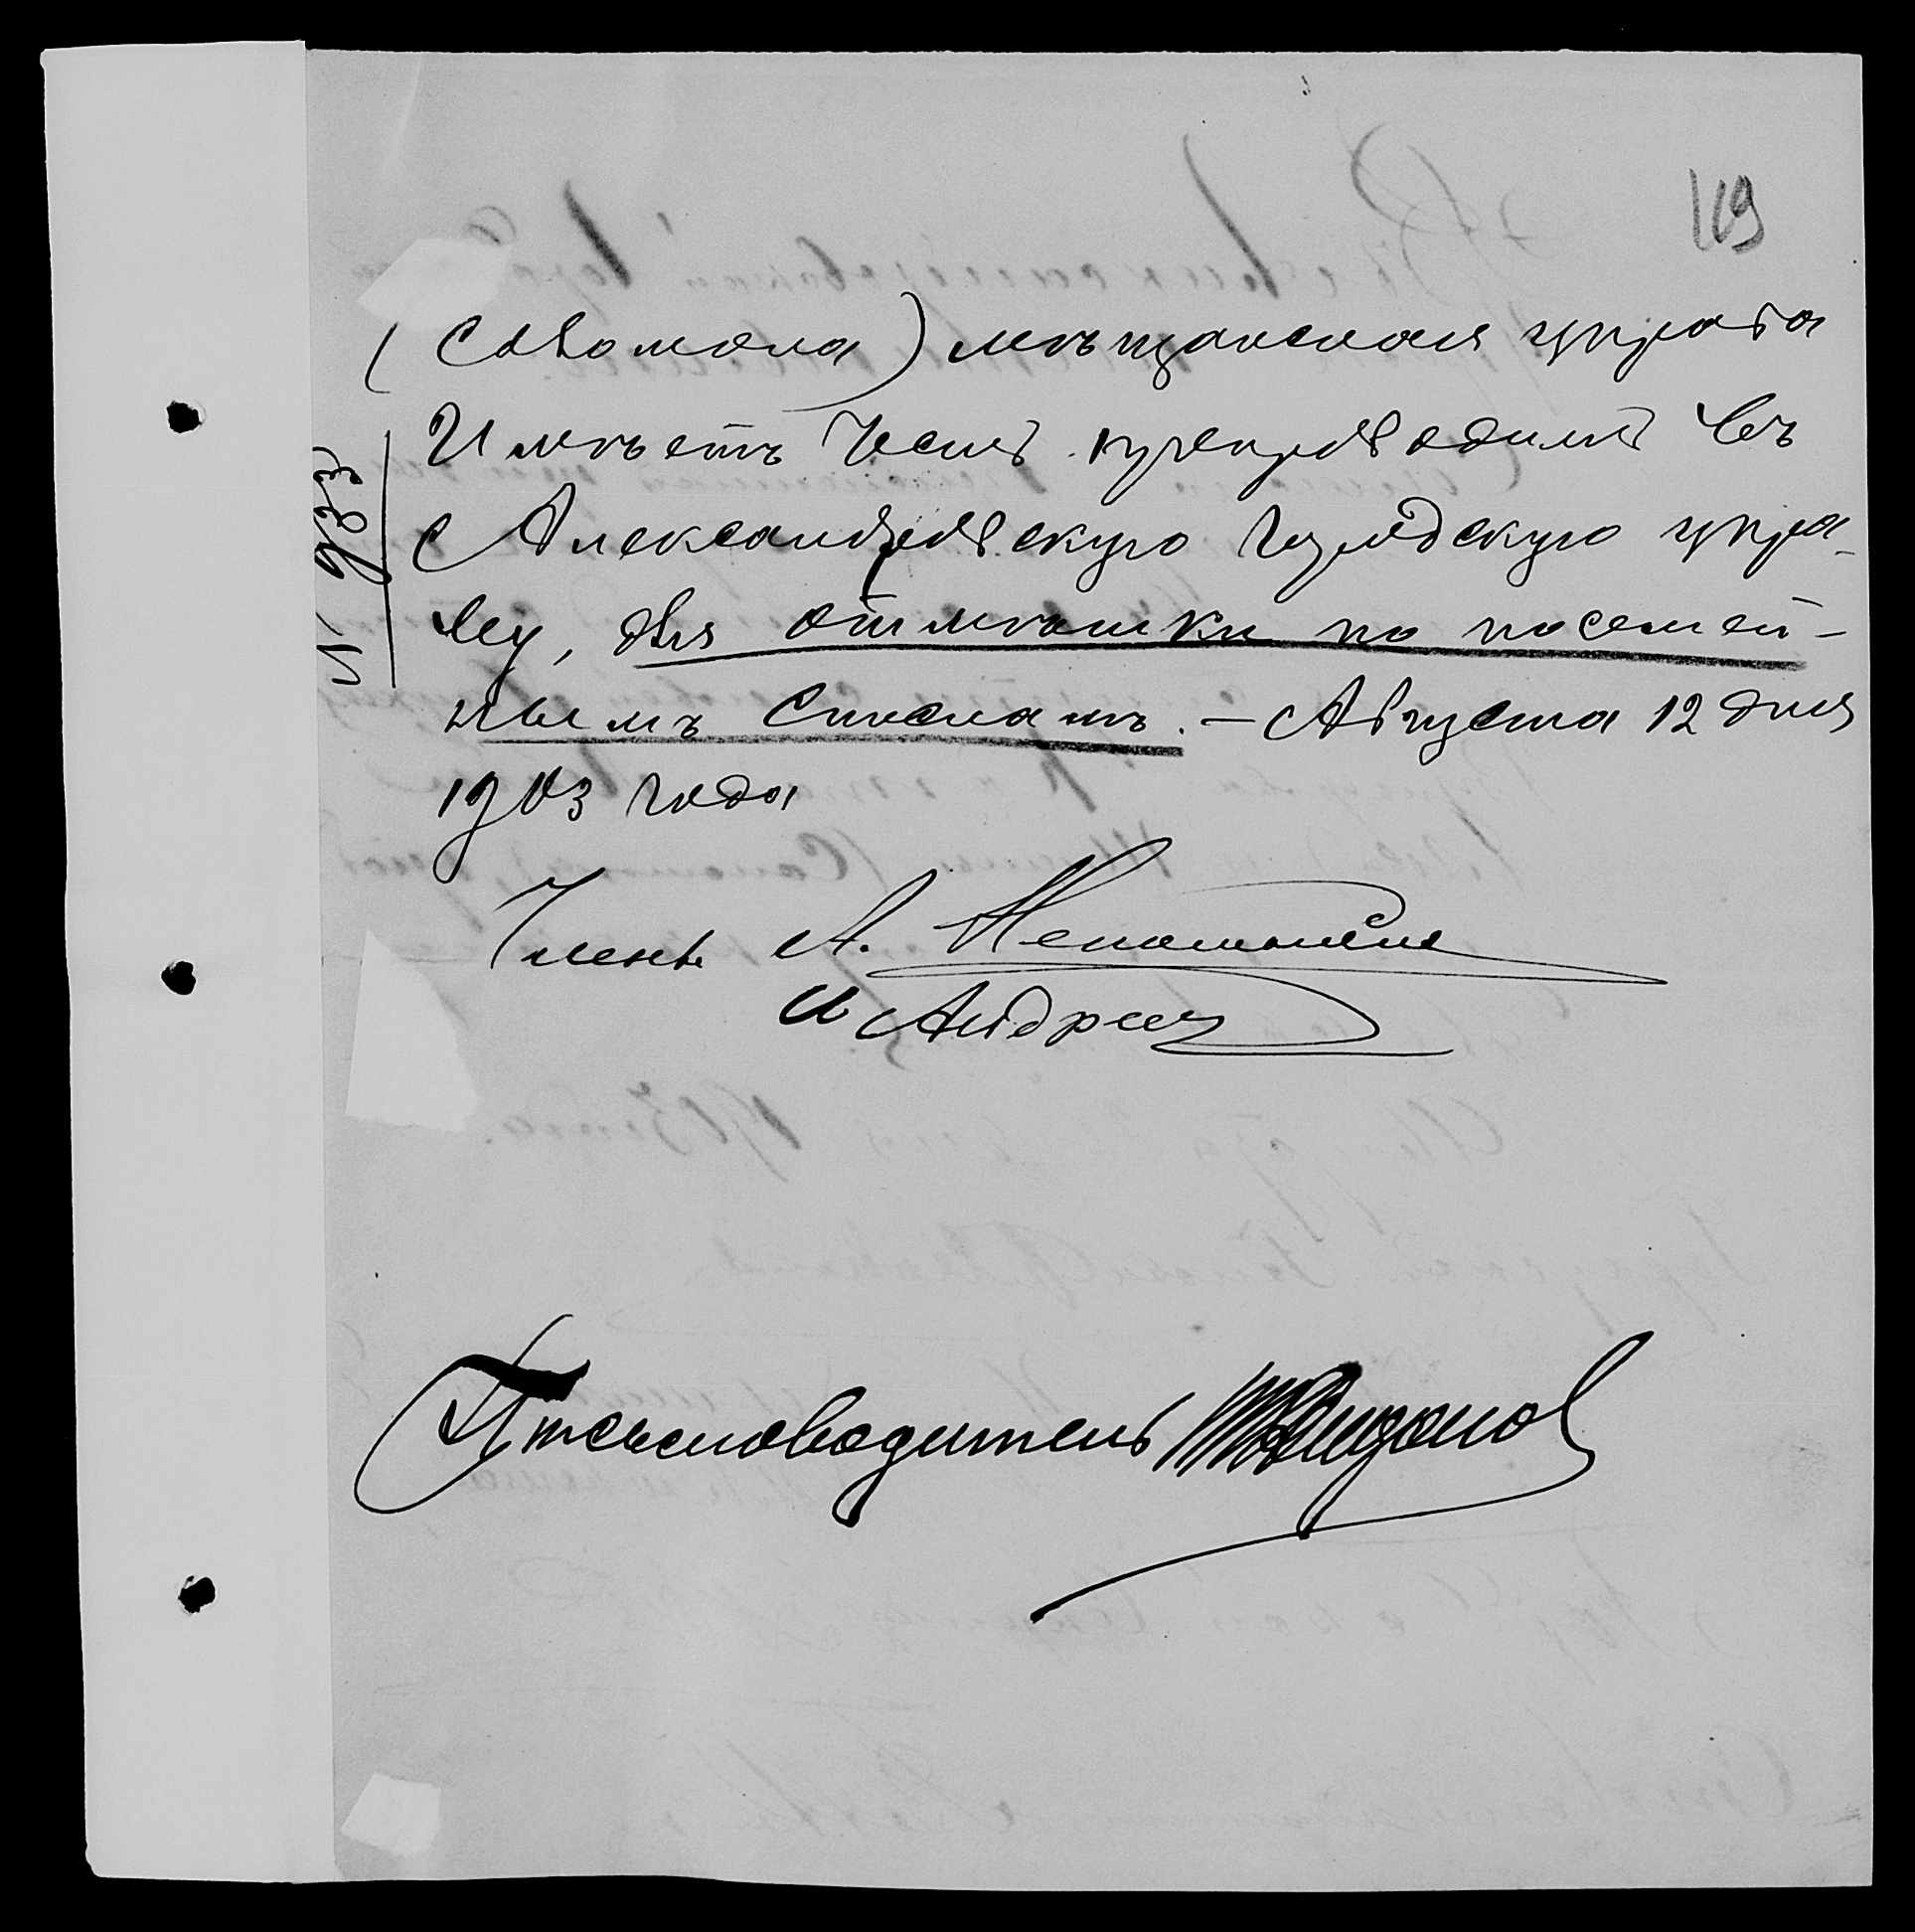 119
мѣщанская управа
Имѣетъ честь препроводить въ
Александровскую Городскую упра-
ву, для отмѣтки по посемей-
нымъ спискамъ. — Августа 12 дня
1903 года
№ 933
Члены А.
и Андрее
Письмоводитель